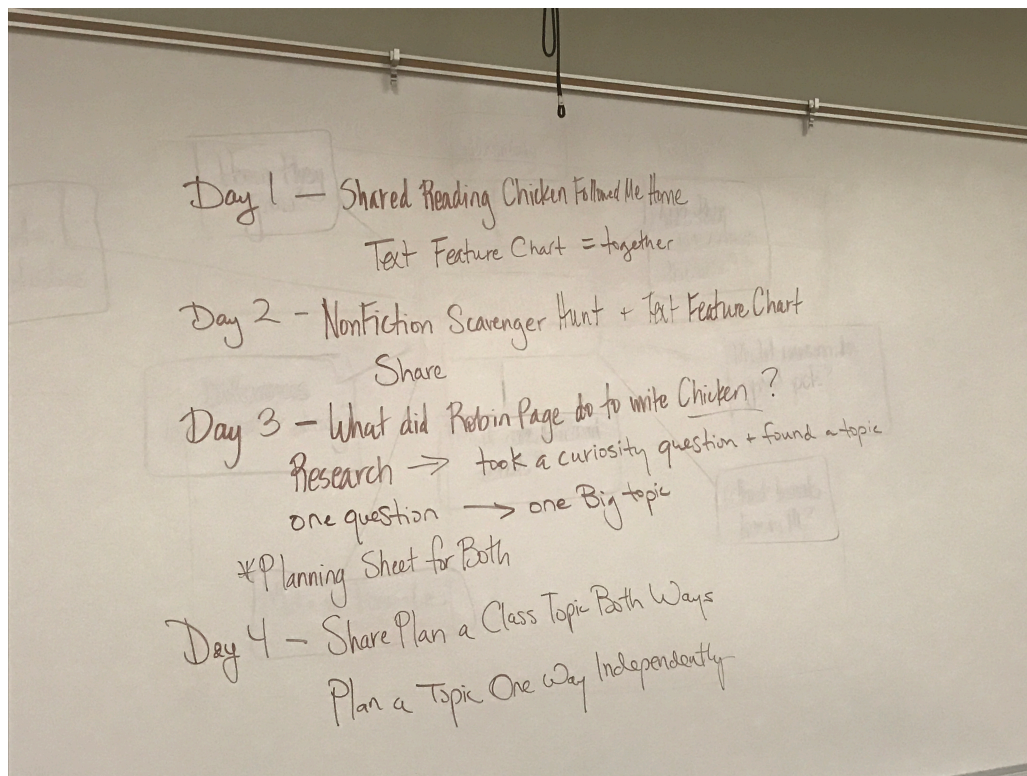 Day 1 — Shared Reading Chicken Followed Me Home
Text Feature Chart = together
Day 2 - NonFiction Scavenger Hunt + Text Feature Chart
Share
Day 3 - What did Robin Page do to write Chicken ?
Research → took a curiosity question + found a topic
one question → one Big topic
*Planning Sheet for Both
Day 4 - Share Plan a Class Topic Both Ways
Plan a Topic One Way Independently